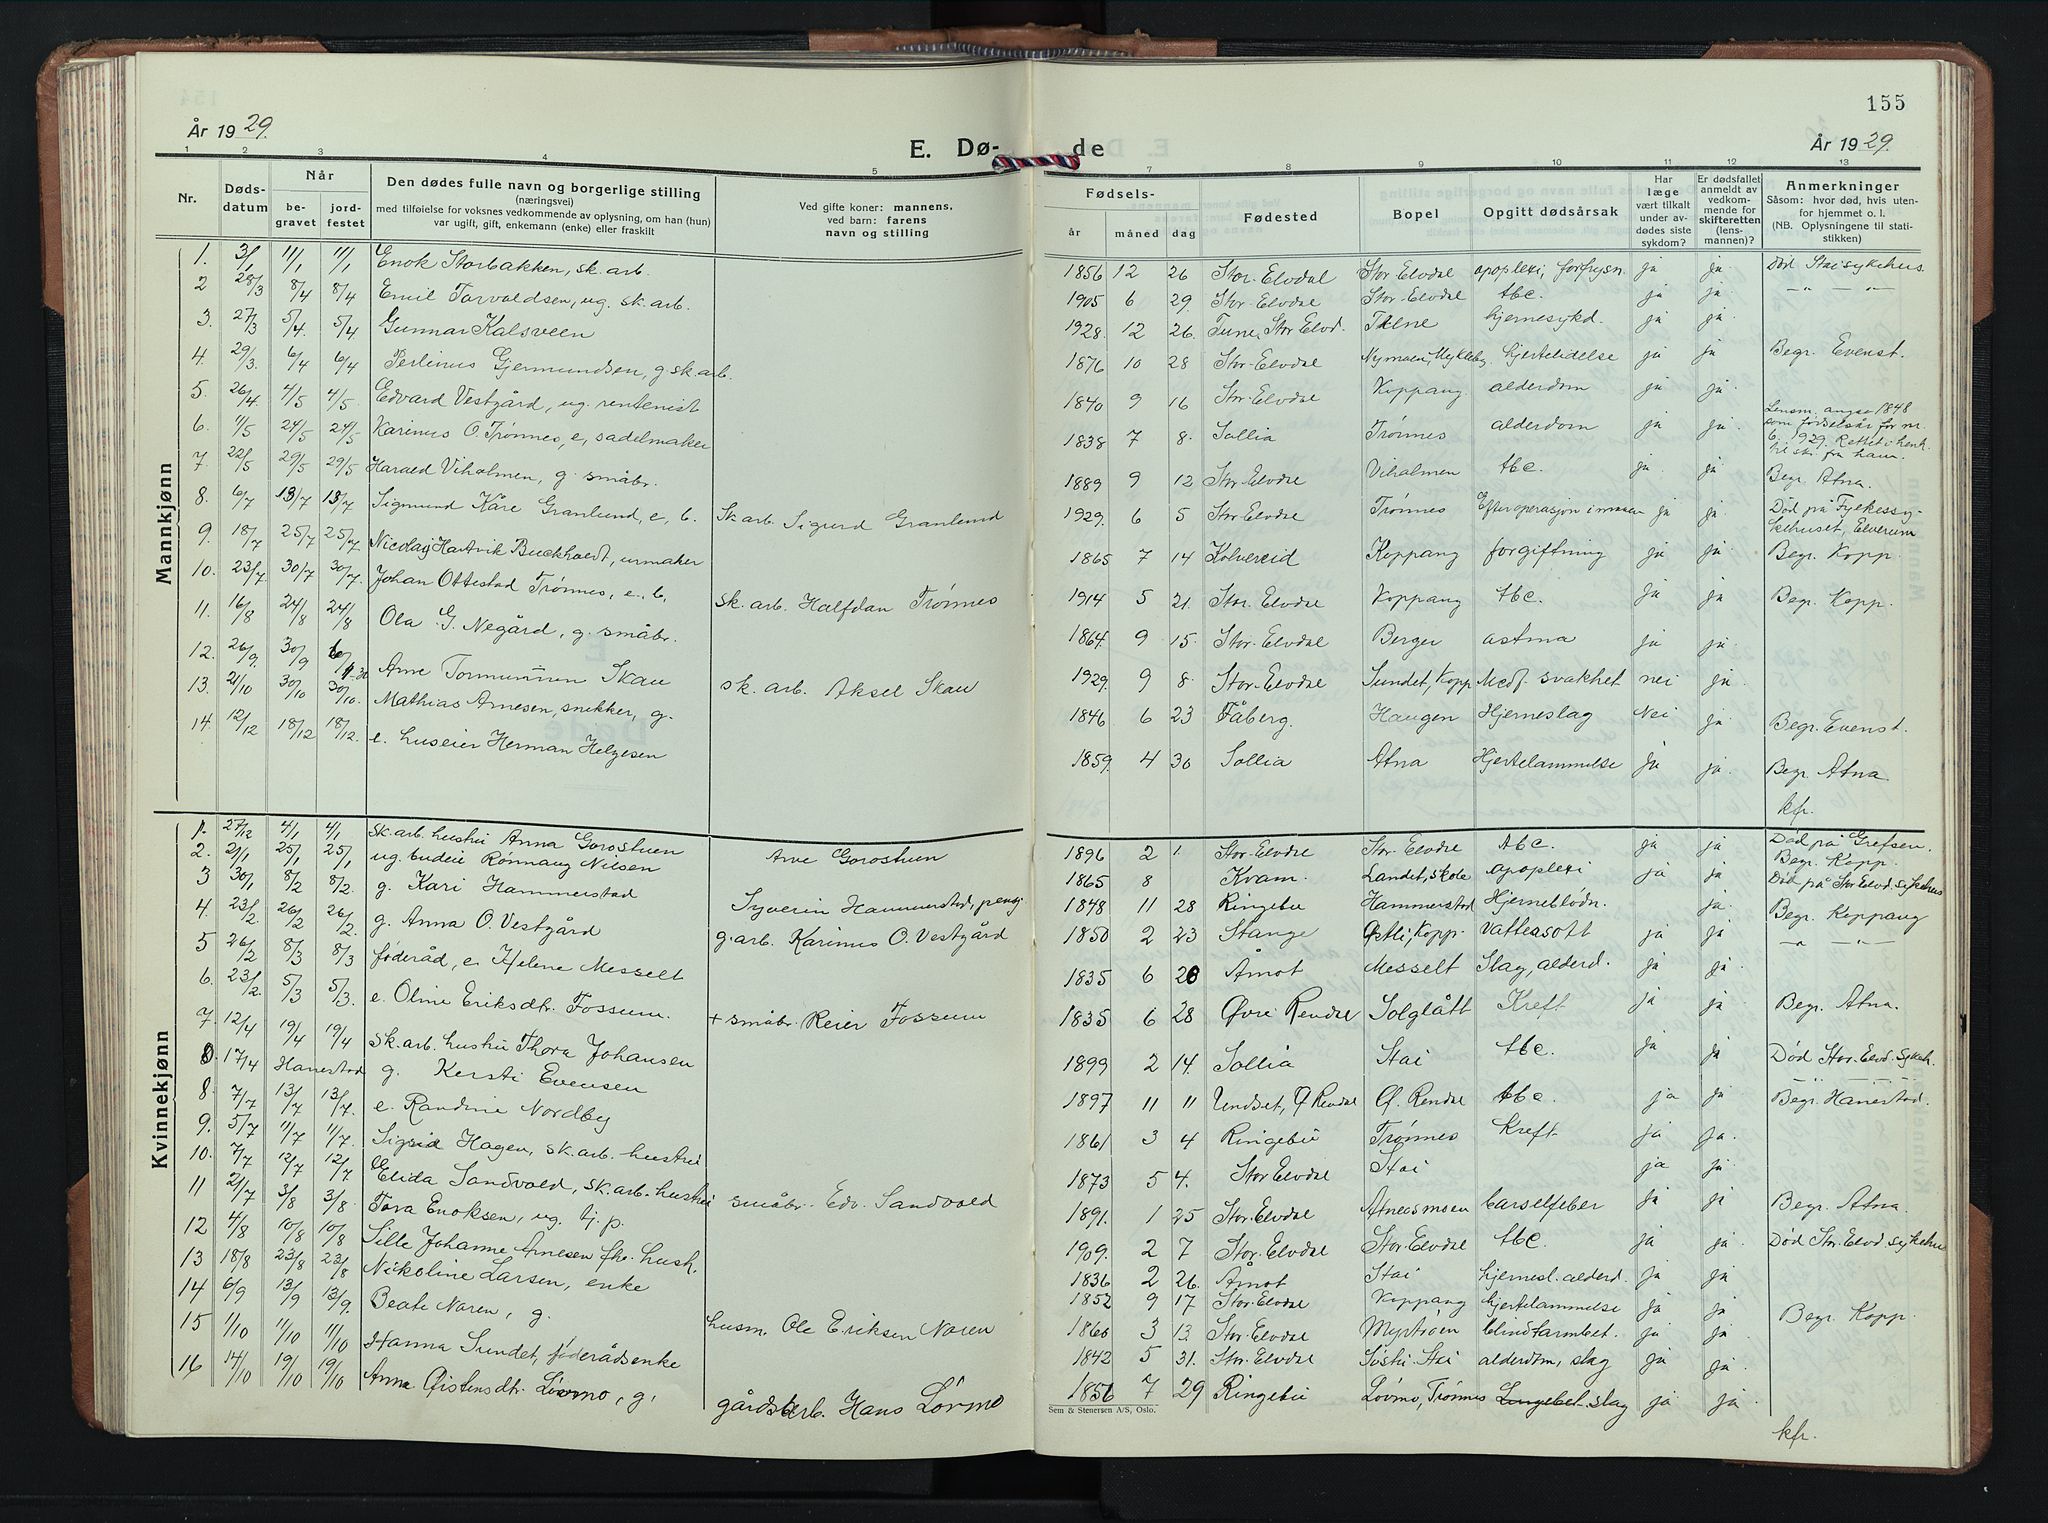 155
År 1929.
E. Dø-
de
År 1929.
1 2 3 4 5 7 8 9 10 11 12 13
Nr.
Døds-
datum
Når
be-
gravet
jord-
festet
Den dødes fulle navn og borgerlige stilling
(næringsvei)
med tilføielse for voksnes vedkommende av oplysning, om han (hun)
var ugift, gift, enkemann (enke) eller fraskilt
Ved gifte koner: mannens.
ved barn: farens
navn og stilling
Fødsels-
år måned dag
Fødested
Bopel
Opgitt dødsårsak
Har
læge
vært tilkalt
under av-
dødes siste
sykdom?
Er dødsfallet
anmeldt av
vedkom-
mende for
skifteretten
(lens-
mannen)?
Anmerkninger
Såsom: hvor død, hvis uten-
for hjemmet o. l.
(NB. Oplysningene til stati-
stikken)
Mannkjønn
1. 3/1 11/1 11/1 Enok Storbakken, sk. arb. 1856 12 26 Stor-Elvdal Stor Elvdal apoplexi, forfrysn. ja ja. Død Stai sykehus.
2 28/3 8/4 8/4 Emil Torvaldsen, ug. sk. arb. 1905 6 29. Stor-Elvdal Stor-Elvdal tbc. ja ja. -"- -"-
3. 27/3 5/4. 5/4 Gunnar Kalsveen 1928. 12 26. Tune, Stor Elvd. hjernesykd. ja ja.
4. 29/3. 6/4 6/4 Perlinus Gjermundsen, g sk. arb. 1876 10 28 Stor-Elvdal Nymoen, Mykleby hjertelidelse ja ja Begr. Evenst.
5. 26/4 4/5 4/5 Edvard Vestgård, ug. rentenist 1840 9 16 Stor-Elvdal Koppang alderdom ja ja.
6. 11/5 24/5 24/5 Karinus O. Trønnes, e, sadelmaker 1838 7 8. Sollia Trønnes alderdom ja ja. Lensm. angir 1848
som fødselsår for nr.
6. 1929. Rettet i henh.
til skr. fra ham.
7. 22/5 29/5 29/5 Harald Viholmen, g. småbr. 1889 9 12 Stor-Elvdal Viholmen tbc. ja. ja. Begr. Atna.
8. 6/7 13/7 13/7 Sigmund Kåre Granlund, e. b. Sk. arb. Sigurd Granlund 1929. 6 5 Stor Elvdal Trønnes Efter operasjon i maven ja ja Død på Fylkessy-
kehuset, Elverum
9. 18/7 25/7 25/7 Nicolay Hartvik Buckholdt, urmaker 1865 7 14 Kolvereid Koppang forgiftning ja ja Begr. Kopp.
10. 23/7. 30/7 30/7. Johan Ottestad Trønnes, e. b. sk. arb. Halfdan Trønnes 1914 5 21. Stor. Elvdal Koppang tbc. ja ja Begr. Kopp.
11. 16/8 24/8 24/8 Ola G. Negård, g. småbr. 1864. 9 15. Stor-Elvdal Berger astma ja ja.
12. 26/9. 30/9 6/1-30 Arne Skau sk. arb. Aksel Skau 1929. 9 8. Stor-Elvdal Sundet, Kopp Medf. svakhet nei ja.
13. 21/10 30/10 30/10. Mathias Arnesen, snikker, g. 1846 6 23 Fåberg. Haugen Hjerneslag Nei ja. Begr. Evenst.
14. 12/12 18/12 18/12. e. huseier Herman Helgesen 1859. 4 30 Sollia Atna Hjertelammelse ja ja. Begr. Atna.
kfr.
Kvinnekjønn
1. 27/12 4/1 4/1 sk. arb. hustru Anna Goroshuen Arve Goroshuen 1896 2 1 Stor-Elvdal Stor. Elvdal tbc. ja ja Død på Grefsen.
2. 21/1 25/1 25/1 ug. budeie Rønnaug Nilsen 1865 8 Kvam. Landet, skole apoplexi ja ja Begr. Kopp.
Død på Stor Elvd. sykehus
3 30/1 8/2 8/2. g. Kari Hammerstad Syverin Hammerstad, pensj 1848 11 28 Ringebu Hammerstad Hjerneblødn. ja. Begr. Koppang
4. 23/2 26/2 26/2. g. Anna O. Vestgård g. arb. Karinus O. Vestgård 1850 2 23 Stange Østli, Kopp. Vattersott ja ja -"- -"-
5 26/2 8/3 8/3 føderåd, e. Helene Messelt 1835 6 20 Åmot Messelt Slag, alderd. ja ja.
6. 23/2. 5/3 5/3. e. Oline Eriksdtr. Fossum. + småbr. Reier Fossum 1835 6 28 Øvre Rendal Solglått Kreft ja ja. Begr. Atna.
7. 12/4 19/4 19/4 sk. arb. hustru Thora Johansen 1899 2 14. Sollia Stai tbc. ja ja Død Stor. Elvd. Sykeh.
0. 17/4 Hanestad g. Kersti Evensen 1897 11 11 Undset, Ø Rendal Ø. Rendal tbc. ja ja Begr. Hanestad.
8. 7/7 13/7 13/7. e. Randine Nordby 1861 3 4 Ringebu Trønnes Kreft ja ja.
9. 5/7 11/7 11/7. Sigrid Hagen, sk. arb. hustru 1873 5 4. Stor Elvdal Stai ja ja.
10. 7/7 12/7 12/7. Elida Sandvold, sk. arb. hustru småbr. Edv. Sandvold 1891. 1 25 Stor. Elvdal Atneosmoen barselfeber ja ja Begr. Atna.
11 21/7 3/8 3/8 Tora Enoksen, ug. tj. p. 1909. 2 7 Stor. Elvdal Stor-Elvdal tbc. ja ja. Død Stor-Elvd. sykehus
12 4/8 10/8 10/8 Sille Johanne Arnesen fhv. hush. 1836 2 26. Åmot Stai hjernesl. alderd. ja ja.
13 18/8 23/8 23/8 Nikoline Larsen, enke 1852 9 17 Stor-Elvdal Koppang hjertelammelse ja ja. Begr. Kopp.
14 6/9 13/9 13/9. Beate Noren, g. husm. Ole Eriksen Noren 1860 3 13. Stor-Elvdal blindtarmbet. ja ja.
15 1/10 11/10 11/10 Hanna Sundet, føderådsenke 1842 5 31. Stor-Elvdal Stai alderdom, slag ja ja.
16 14/10 19/10 19/10 Anna Øistensdtr. Lövmo, g. gårdsarb. Hans Lövmo 1856 7 29 Ringebu Lövmo, Trønnes slag ja ja.
Sem & Stenersen A/S, Oslo.
kfr.